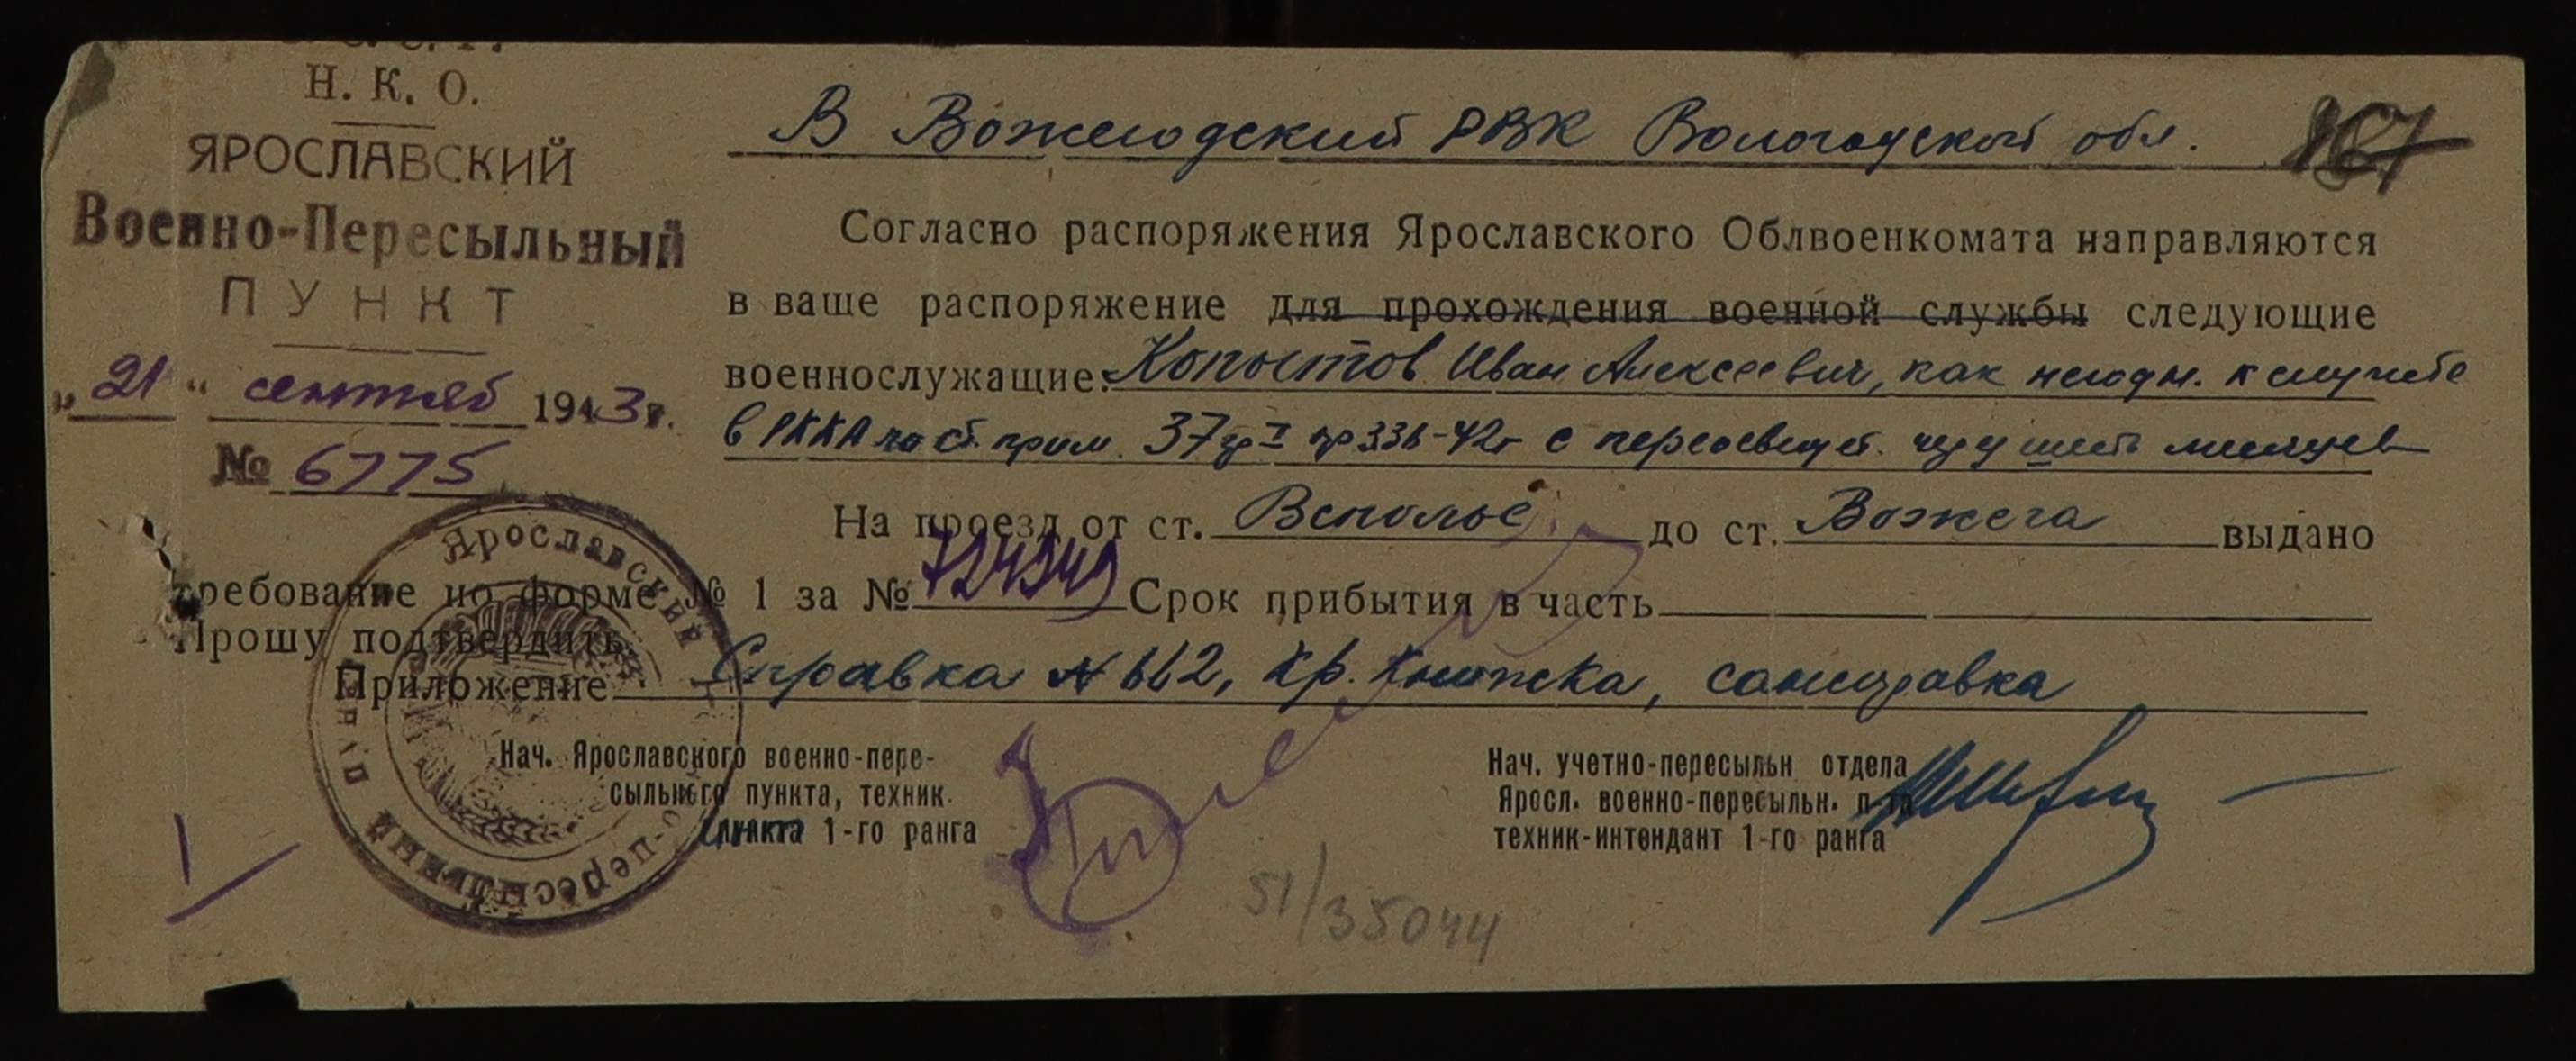 Н. К. О.
ЯРОСЛАВСКИЙ
Военно-Пересыльный
ПУНКТ
„21“ сентяб 1943г.
№ 6775
В Вожегодский РВК Вологодской обл.
167
Согласно распоряжения Ярославского Облвоенкомата направляются
в ваше распоряжение для прохождения военной службы следующие
военнослужащие: Копытов Иван Алексеевич, как негодн. к службе
в РККА по ст. прим. 37 гр I пр 336-42г с переосвидет. через шесть месяцев
На проезд от ст. Всполье до ст. Вожега выдано
требование по форме № 1 за № 724949 Срок прибытия в часть
Прошу подтвердить.
Приложение Справка № 662, Кр. Книжка, сансправка
Ярославский
-пересыльный
Нач. Ярославского военно-пере-
сыльного пункта, техник
1-го ранга
Нач. учетно-пересыльн отдела
Яросл. военно-пересыльн. п-та
техник-интендант 1-го ранга
51/35044